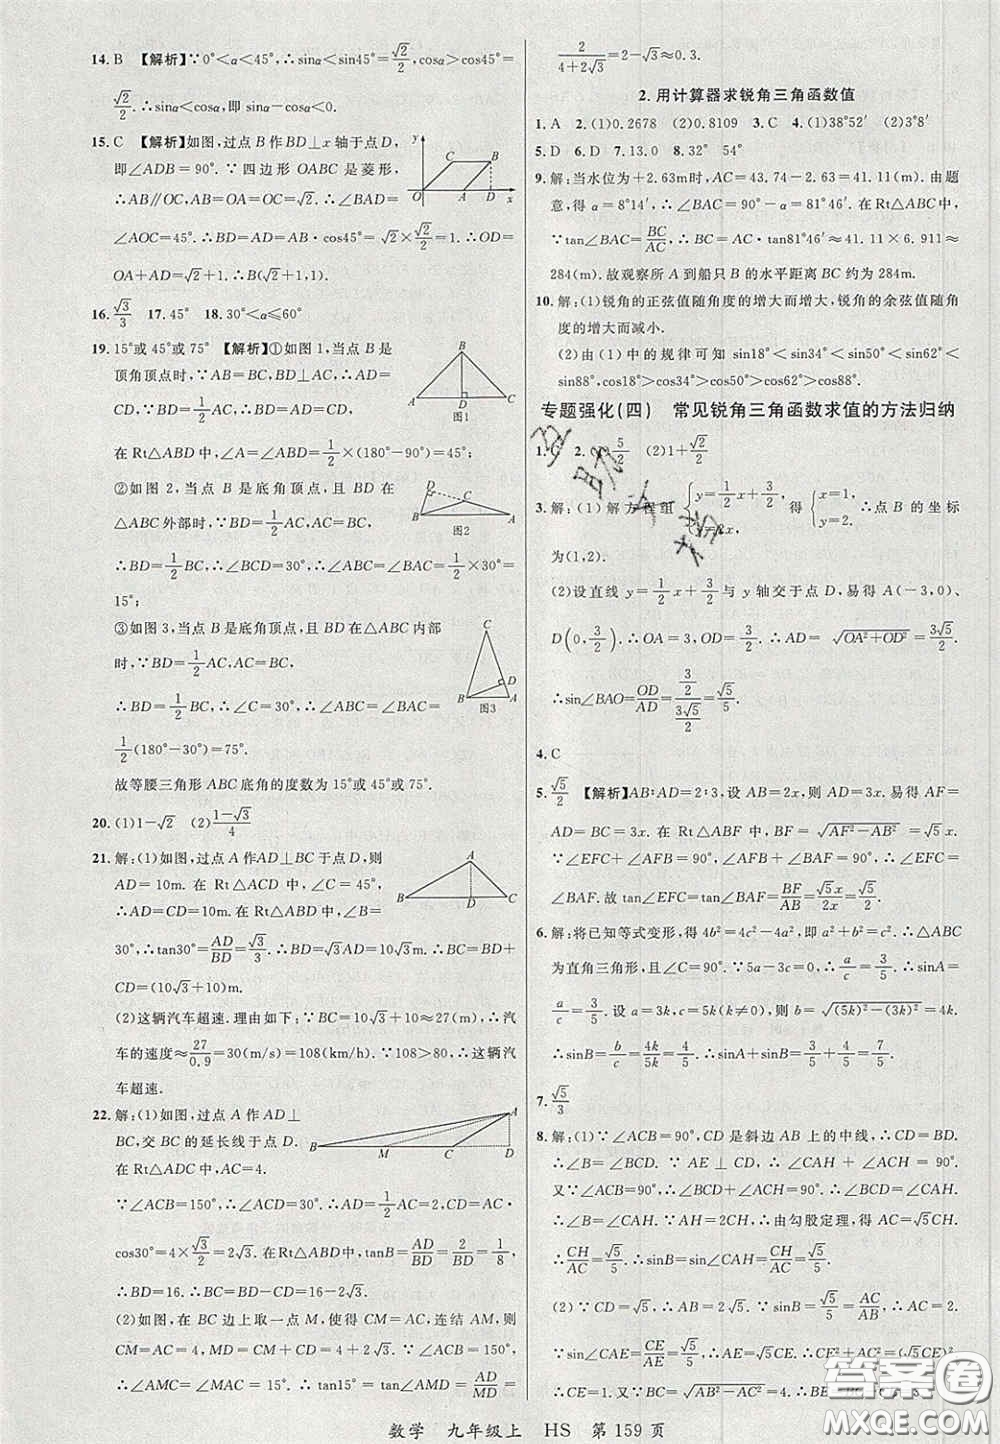 14. B 【解析】∵0°<α<45°,∴sinα<sin45°=√2/2,cosα>cos45°=
√2/2.∴sinα<cosα,即 sinα-cosα<0.
15. C 【解析】如图,过点 B 作 BD⊥x 轴于点 D,
即∠ADB=90°.∵四边形 OABC 是菱形,
∴AB∥OC,AB=OA=OC=√2.∴∠BAD=
∠AOC=45°.∴BD=AD=AB·cos45°=√2×√2/2=1.∴OD=
OA+AD=√2+1.∴B(√2+1,1).
16. √3/3 17. 45° 18. 30°<α≤60°
19. 15°或 45°或 75° 【解析】①如图 1,当点 B 是
顶角顶点时,∵AB=BC,BD=1/2AC,∴BD=
AD=CD.
图1
在 Rt△ABD 中,∠A=∠ABD=1/2×(180°-90°)=45°.
②如图 2,当点 B 是底角顶点,且 BD 在
△ABC 外部时,∵BD=1/2AC,AC=BC,
图2
∴BD=1/2BC,∴∠BCD=30°.∴∠ABC=∠BAC=1/2×30°=
15°;
③如图 3,当点 B 是底角顶点,且 BD 在△ABC 内部
时,∵BD=1/2AC,AC=BC,
∴BD=1/2BC,∴∠C=30°,∴∠ABC=∠BAC=
图3
1/2(180°-30°)=75°.
故等腰三角形 ABC 底角的度数为 15°或 45°或 75°.
20. (1)1-√2 (2)(1-√3)/4
21. 解:(1)如图,过点 A 作AD⊥BC 于点 D,则
AD=10m. 在 Rt△ACD 中,∠C=45°,
∴AD=CD=10m. 在 Rt△ABD 中,∠B=
30°,∴tan30°=AD/BD=√3/3.∴BD=√3AD=10√3m.∴BC=BD+
CD=(10√3+10)m.
(2)这辆汽车超速. 理由如下:∵BC=10√3+10≈27(m),∴汽
车的速度≈27/0.9=30(m/s)=108(km/h).∵108>80,∴这辆汽
车超速.
22. 解:(1)如图,过点 A 作 AD⊥
BC,交 BC 的延长线于点 D.
在 Rt△ADC 中,AC=4.
∵∠ACB=150°,∴∠ACD=30°.∴AD=1/2AC=2,CD=AC·
cos30°=4×√3/2=2√3. 在 Rt△ABD 中,tanB=AD/BD=2/BD=1/8,
∴BD=16.∴BC=BD-CD=16-2√3.
(2)如图,在 BC 边上取一点 M,使得 CM=AC,连接 AM,则
CM=AC=4,MD=CM+CD=4+2√3.∵∠ACB=150°,
∴∠AMC=∠MAC=15°.∴tan15°=tan∠AMD=AD/MD=
2/(4+2√3)=2-√3≈0.3.
2. 用计算器求锐角三角函数值
1. A 2. (1)0.2678 (2)0.8109 3. C 4. (1)38°52′ (2)3°8′
5. D 6. D 7. 13.0 8. 32° 54°
9. 解:当水位为+2.63m时,AC=43.74-2.63=41.11(m). 由题
意,得 α=8°14′,∴∠BAC=90°-α=81°46′. 在 Rt△ABC 中,
∵tan∠BAC=BC/AC,∴BC=AC·tan81°46′≈41.11×6.911≈
284(m). 故观察所 A 到船只 B 的水平距离 BC 约为 284m.
10. 解:(1)锐角的正弦值随角度的增大而增大,锐角的余弦值随角
度的增大而减小.
(2)由(1)中的规律可知 sin18°<sin34°<sin50°<sin62°<
sin88°,cos18°>cos34°>cos50°>cos62°>cos88°.
专题强化(四) 常见锐角三角函数求值的方法归纳
1. C 2. (1)5/2 (2)1+√2/2
3. 解:(1)解方程组{y=1/2x+3/2, y=2x, 得{x=1, y=2. ∴点 B 的坐标
为(1,2).
(2)设直线 y=1/2x+3/2与 y 轴交于点 D,易得 A(-3,0)、
D(0,3/2).∴OA=3,OD=3/2.∴AD=√(OA²+OD²)=3√5/2.
∴sin∠BAO=OD/AD=(3/2)/(3√5/2)=√5/5.
4. C
5. √5/2 【解析】AB∶AD=2∶3,设 AB=2x,则 AD=3x. 易得 AF=
AD=BC=3x. 在 Rt△ABF 中,BF=√(AF²-AB²)=√5x.
∵∠EFC+∠AFB=90°,∠AFB+∠BAF=90°,∴∠EFC=
∠BAF. 故 tan∠EFC=tan∠BAF=BF/AB=√5x/2x=√5/2.
6. 解:将已知等式变形,得 4b²=4c²-4a²,即 a²+b²=c².∴△ABC
为直角三角形,且∠C=90°.∵5a-3c=0,∴a/c=3/5.∴sinA=
a/c=3/5. 设 a=3k,c=5k(k≠0),则 b=√((5k)²-(3k)²)=4k.
∴sinB=b/c=4k/5k=4/5.∴sinA+sinB=3/5+4/5=7/5.
7. √5/3
8. 解:(1)∵∠ACB=90°,CD 是斜边 AB 上的中线,∴CD=BD.
∴∠B=∠BCD. ∵AE⊥CD,∴∠ACD+∠CAH=90°.
又∵∠ACB=90°,∴∠BCD+∠ACH=90°.∴∠BCD=∠CAH.
又∵∠B=∠BCD,∴∠B=∠CAH.
又∵AH=2CH,∴由勾股定理,得 AC=√5CH.
∴CH/AC=CH/√5CH=√5/5.∴sinB=sin∠CAH=CH/AC=√5/5.
(2)∵CD=√5,∴AB=2CD=2√5.∵sinB=√5/5=AC/AB,∴AC=2.
∵sin∠CAE=CE/AE=√5/5,∴AE=√5CE.∴CE²+AC²=(√5CE)².
∴CE=1.∵BC=√(AB²-AC²)=4,∴BE=BC-CE=3.
数学 九年级上 HS 第 159 页
答案圈
MXQE.COM